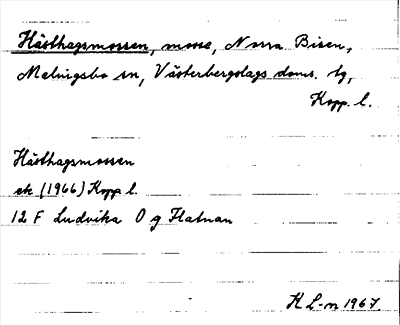 Hästhagsmossen, mosse, Norra Bisen,
Malingsbo sn, Västerbergslags doms. tg,
Kopp. l.
Hästhagsmossen
ek (1966) Kopp. l.
12 F Ludvika O g Flatnan
K L-n 1967.